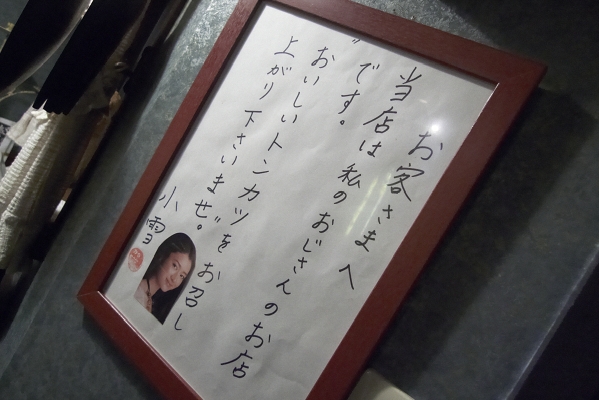 お客さまへ
当店は私のおじさんのお店
〃です。
おいしいトンカツをお召し
上がり下さいませ〃。
小雪